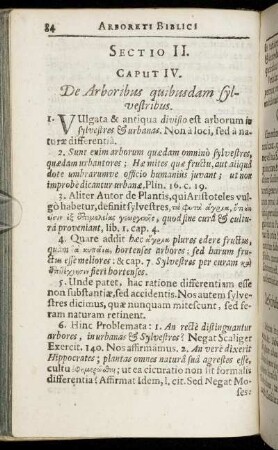 84 ARBORETI BIBLICI
SECTIO II.
CAPUT IV.
De Arboribus quibusdam syl-
vestribus.
1. VUlgata & antiqua divisio est arborum in
sylvestres & urbanas. Non à loci, sed à natu-
ræ differentiâ.
2. Sunt enim arborum quædam omninò sylvestres,
quædam urbaniores; Hæ mites quæ fructu, aut aliquâ
dote umbrarumve officio humaniùs juvant; ut non
improbè dicantur urbanæ. Plin. 16. c. 19.
3. Aliter Autor de Plantis, qui Aristoteles vul-
gò habetur, definit sylvestres,
quod sine curâ & cultu-
râ proveniant, lib. 1. cap. 4.
4. Quare addit hæc ἄγρια plures edere fructus,
quàm hortenses arbores: sed harum fru-
ctus esse meliores: & cap. 7. Sylvestres per curam
fieri hortenses.
5. Unde patet, hac ratione differentium esse
non substantiæ, sed accidentis. Nos autem sylve-
stres dicimus, quæ nunquam mitescunt, sed fe-
ram naturam retinent.
6. Hinc Problemata: 1. An rectè distinguantur
arbores, in urbanas & sylvestres? Negat Scaliger
Exercit. 140. Nos affirmamus. 2. An verè dixerit
Hippocrates; plantas omnes naturâ suâ agrestes esse,
cultu ut ea cicuratio non sit formalis
differentia? Affirmat Idem, l. cit. Sed Negat Mo-
sese